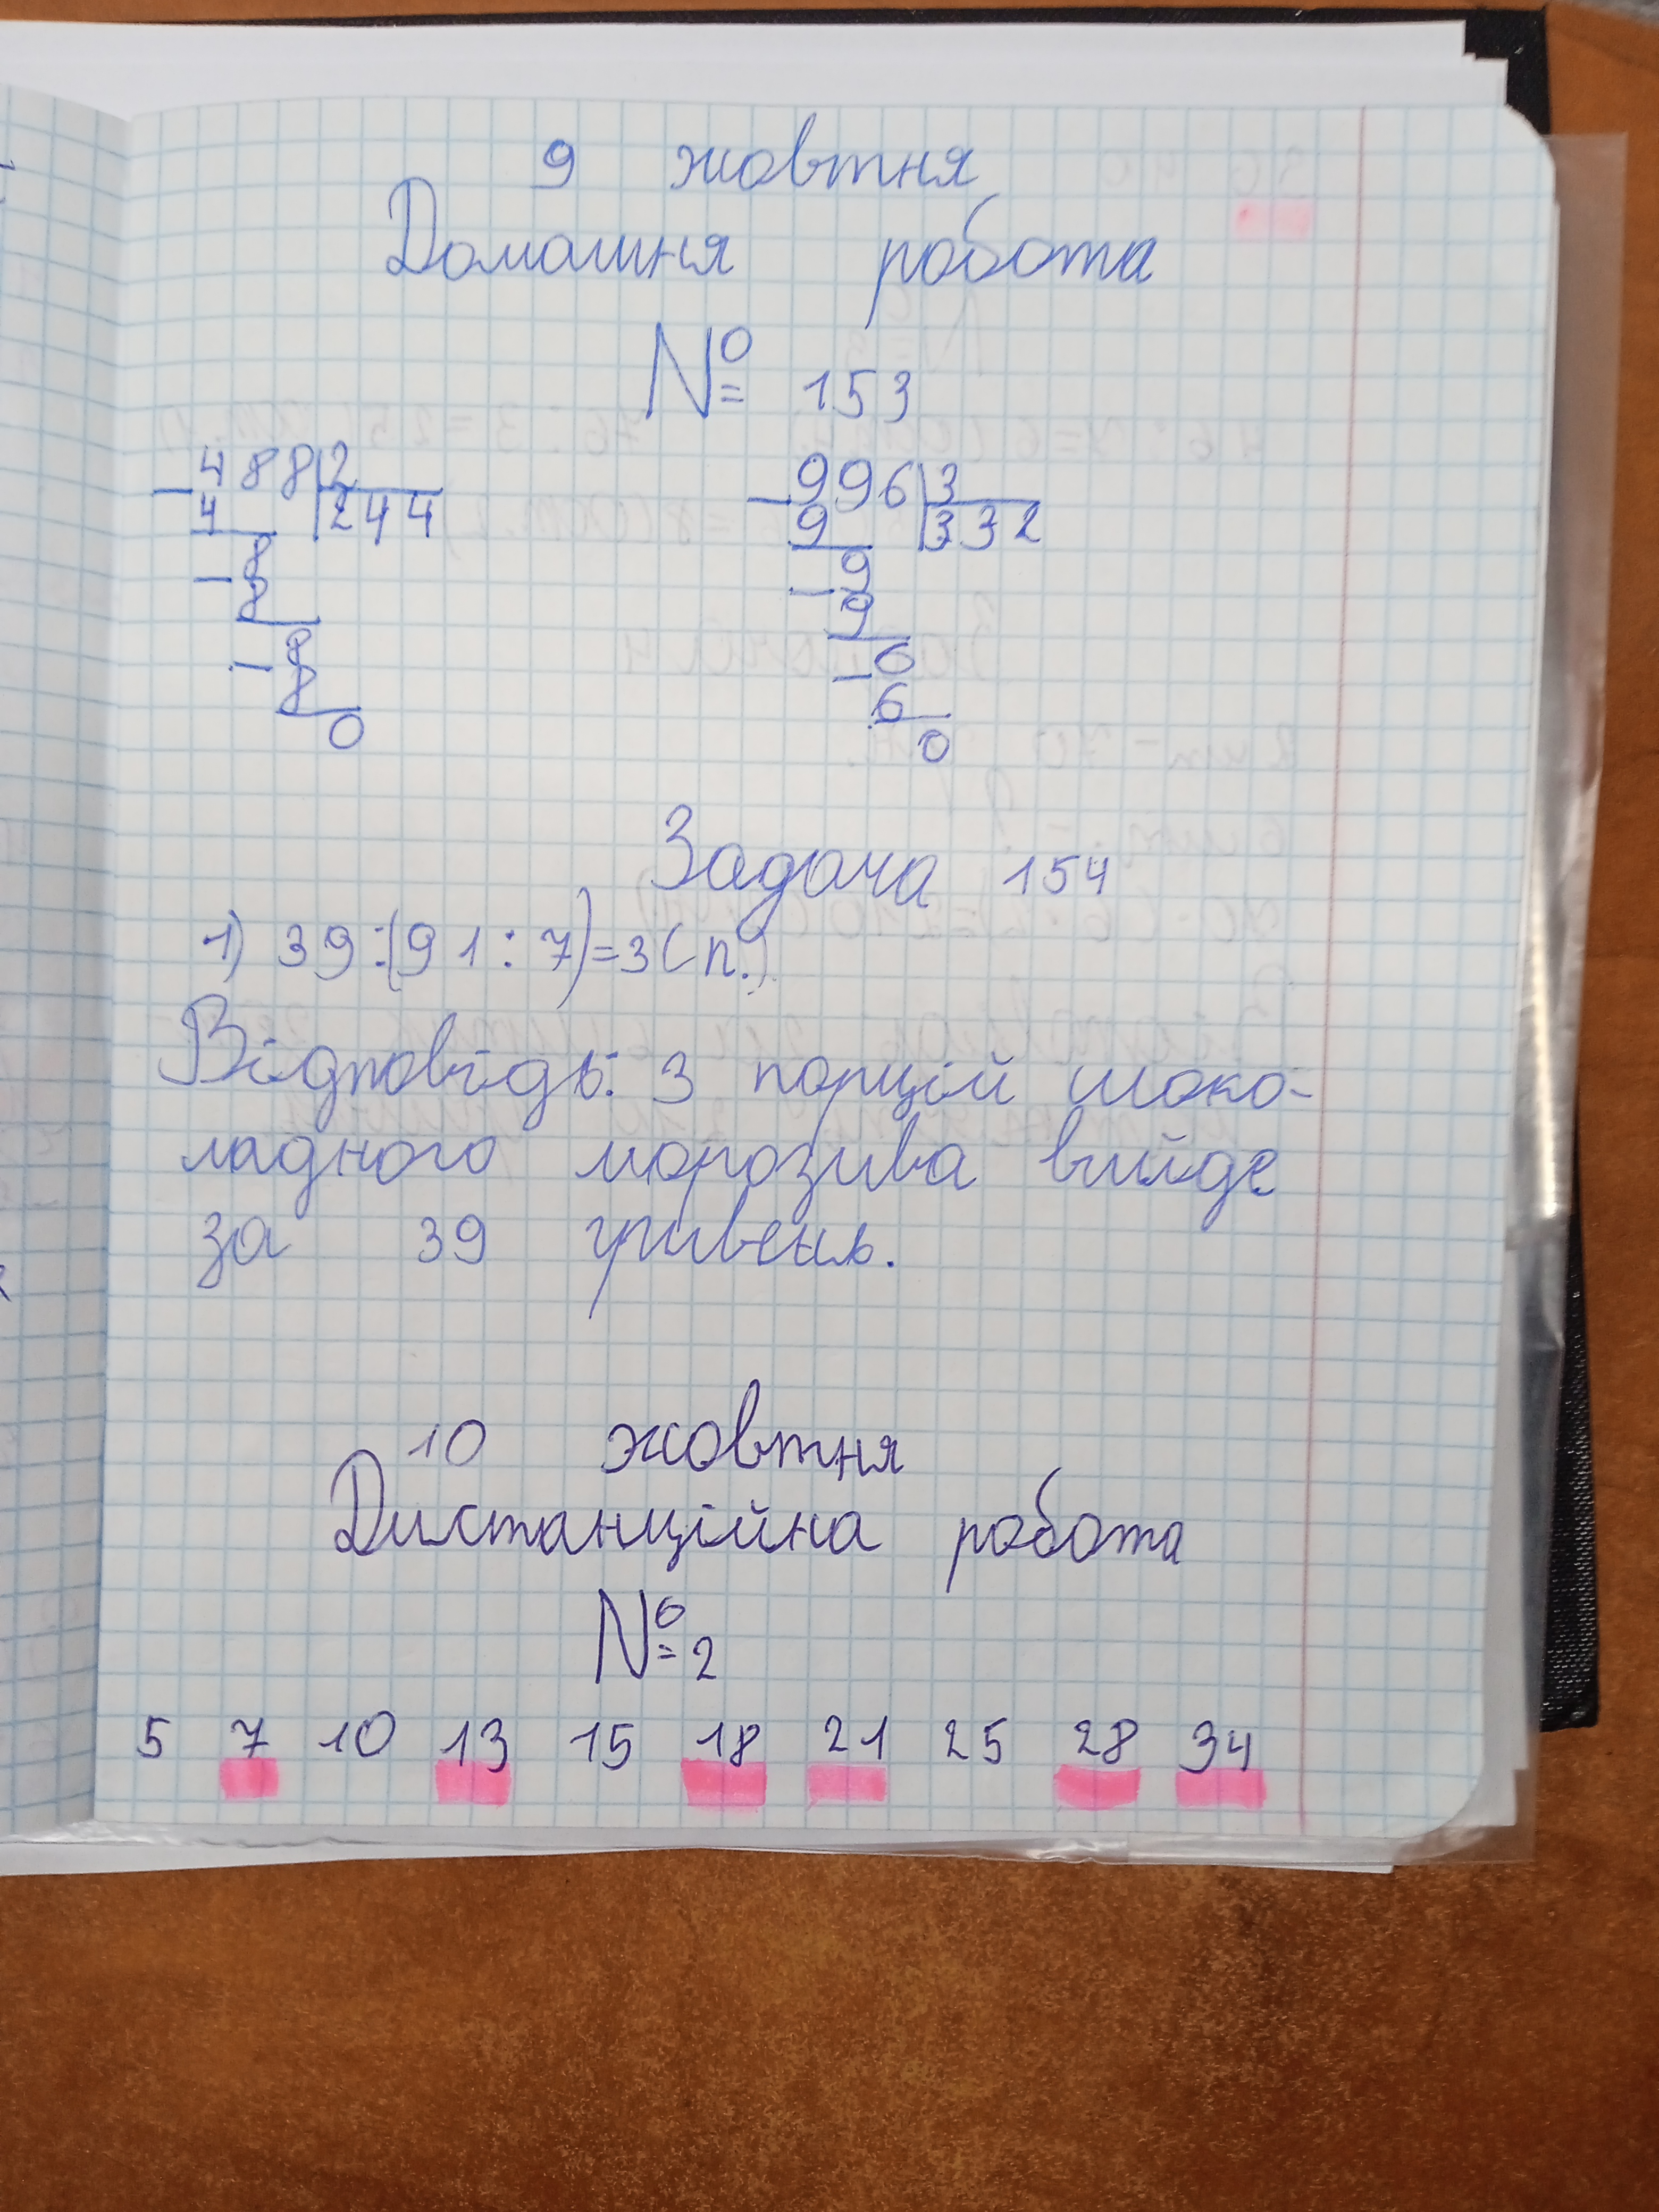 9 жовтня
Домашня робота
№ 153
488 2 996 3
4 244 9 332
8 9
8 9
8 6
8 6
0 0
Задача 154
1) 39:(91:7)=3(п.)
Відповідь: 3 порцій шоко-
ладного морозива вийде
за 39 гривень.
10 жовтня
Дистанційна робота
№ 2
5 7 10 13 15 18 21 25 28 34